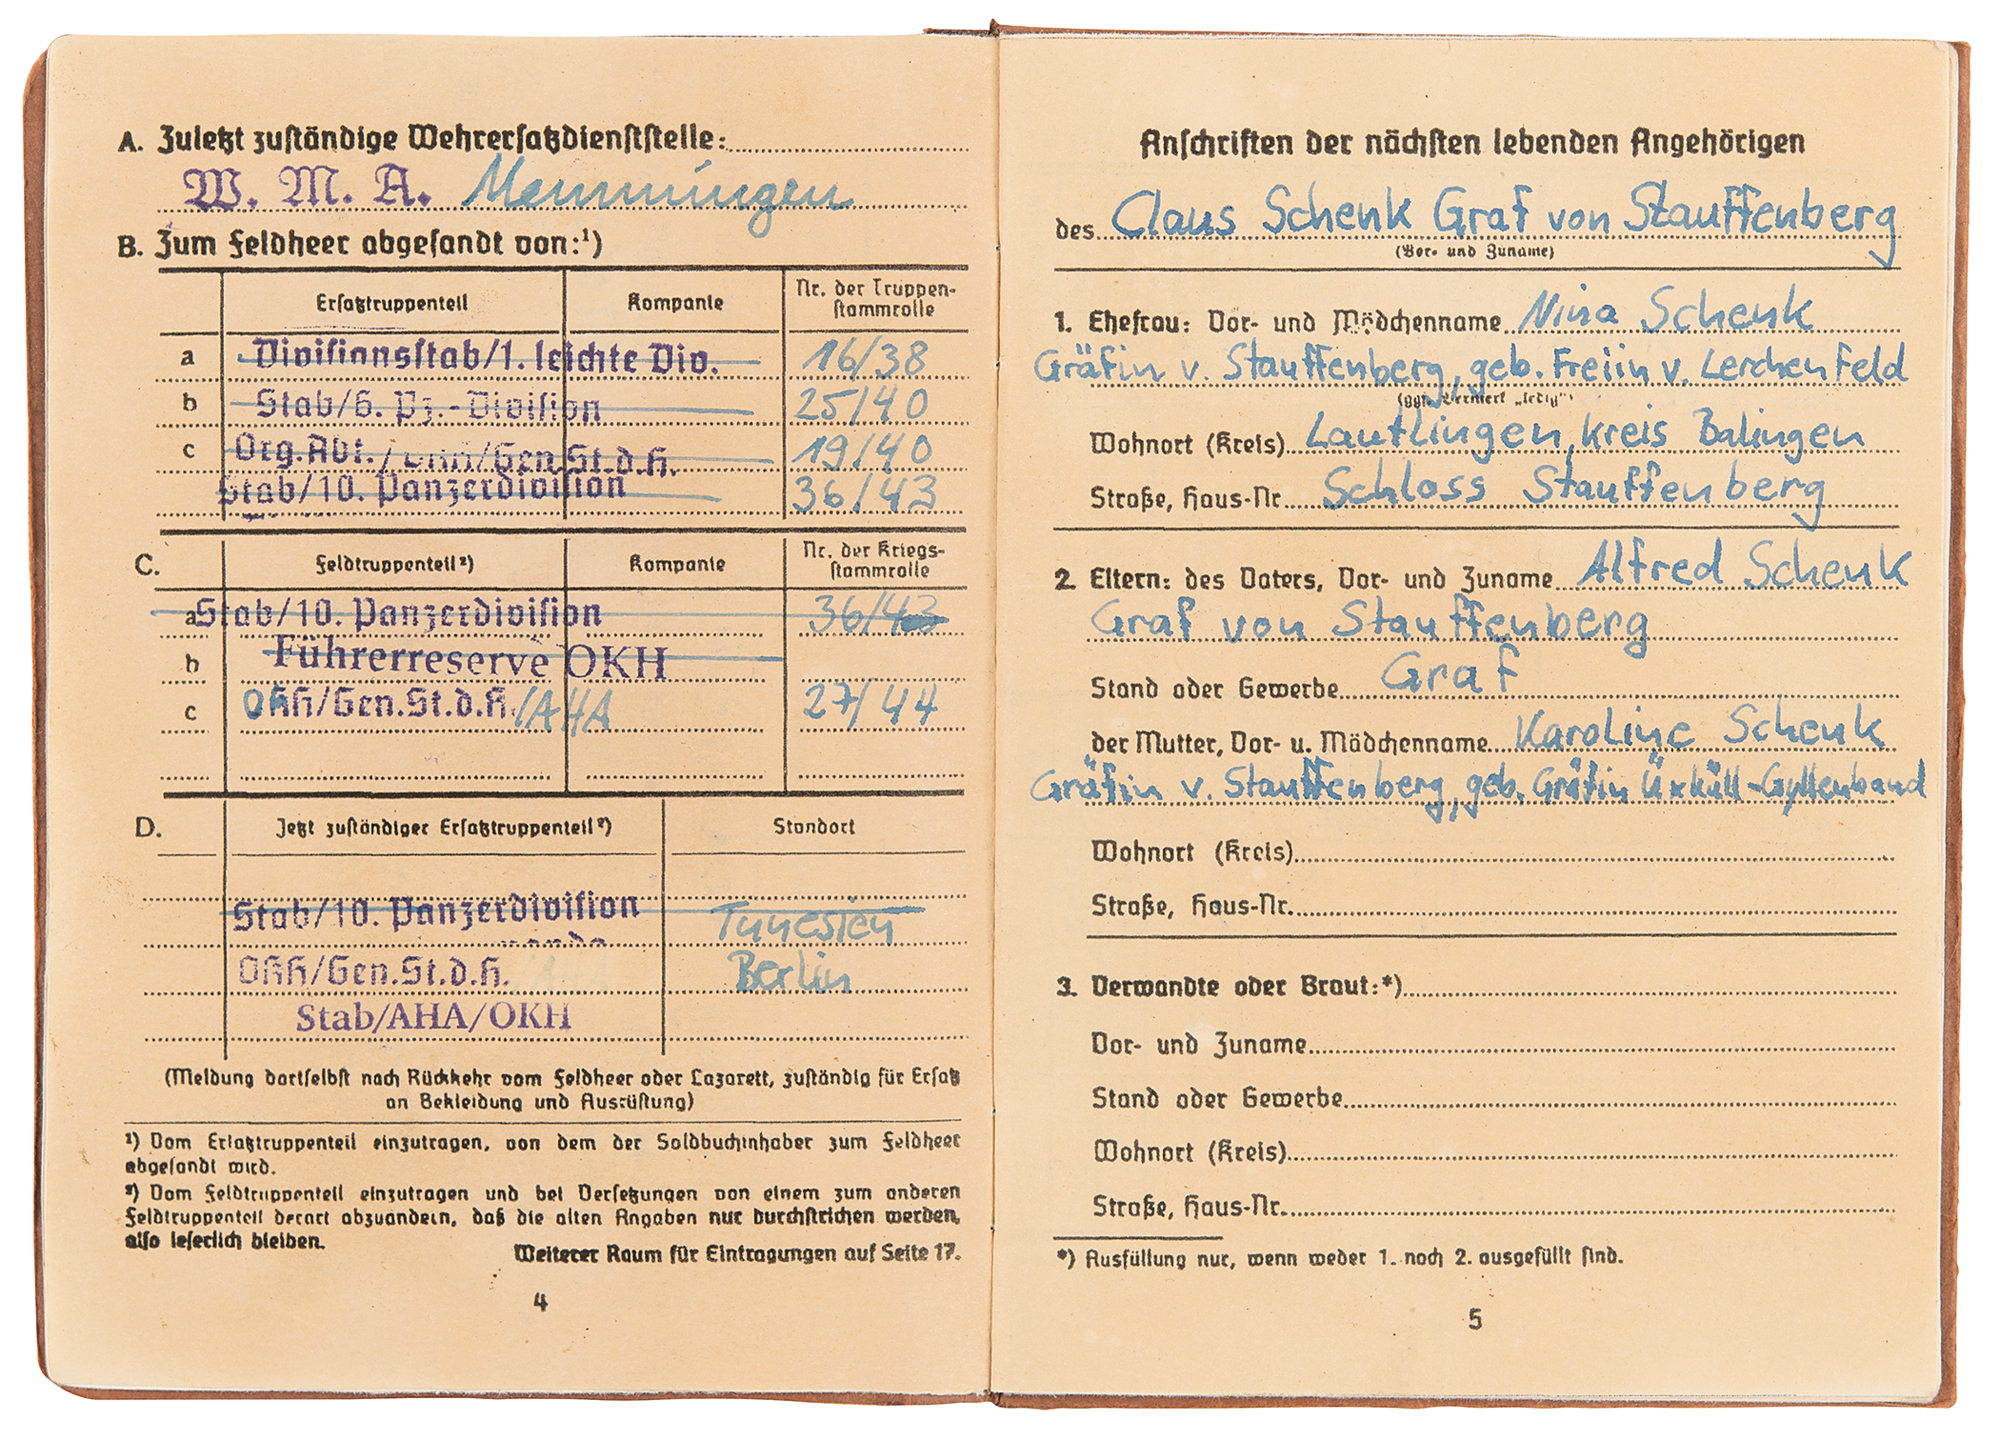 A. Zuletzt zuständige Wehrersatzdienststelle:
W. M. A. Memmingen
B. Zum Feldheer abgesandt von:¹)
Ersatztruppenteil Kompanie Nr. der Truppen-
stammrolle
a Divisionsstab/1. leichte Div. 16/38
b Stab/6. Pz.-Division 25/40
c Org.Abt./OKH/Gen.St.d.H. 19/40
Stab/10. Panzerdivision 36/43
C. Feldtruppenteil²) Kompanie Nr. der Kriegs-
stammrolle
a Stab/10. Panzerdivision 36/43
b Führerreserve OKH
c OKH/Gen.St.d.H./AHA 27/44
D. Jetzt zuständiger Ersatztruppenteil²) Standort
Stab/10. Panzerdivision Tunesien
OKH/Gen.St.d.H. Berlin
Stab/AHA/OKH
(Meldung dortselbst nach Rückkehr vom Feldheer oder Lazarett, zuständig für Ersatz
an Bekleidung und Ausrüstung)
¹) Vom Ersatztruppenteil einzutragen, von dem der Soldbuchinhaber zum Feldheer
abgesandt wird.
²) Vom Feldtruppenteil einzutragen und bei Versetzungen von einem zum anderen
Feldtruppenteil derart abzuändern, daß die alten Angaben nur durchstrichen werden,
also leserlich bleiben.
Weiterer Raum für Eintragungen auf Seite 17.
4
Anschriften der nächsten lebenden Angehörigen
des Claus Schenk Graf von Stauffenberg
(Vor- und Zuname)
1. Ehefrau: Vor- und Mädchenname Nina Schenk
Gräfin v. Stauffenberg, geb. Freiin v. Lerchenfeld
(ggf. Vermerk „ledig")
Wohnort (Kreis) Lautlingen, Kreis Balingen
Straße, Haus-Nr. Schloss Stauffenberg
2. Eltern: des Vaters, Vor- und Zuname Alfred Schenk
Graf von Stauffenberg
Stand oder Gewerbe Graf
der Mutter, Vor- u. Mädchenname Karoline Schenk
Gräfin v. Stauffenberg, geb. Gräfin Üxküll-Gyllenband
Wohnort (Kreis)
Straße, Haus-Nr.
3. Verwandte oder Braut:*)
Vor- und Zuname
Stand oder Gewerbe
Wohnort (Kreis)
Straße, Haus-Nr.
*) Ausfüllung nur, wenn weder 1. noch 2. ausgefüllt sind.
5